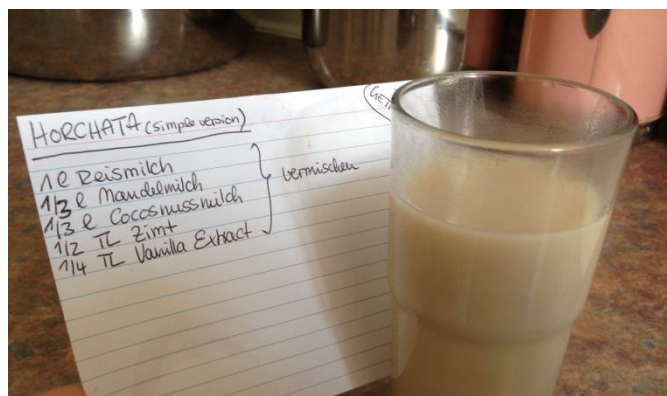 HORCHATA (simple version)
1 l Reismilch
1/3 l Mandelmilch
1/3 l Cocosnussmilch
1/2 TL Zimt
1/4 TL Vanilla Extract
vermischen